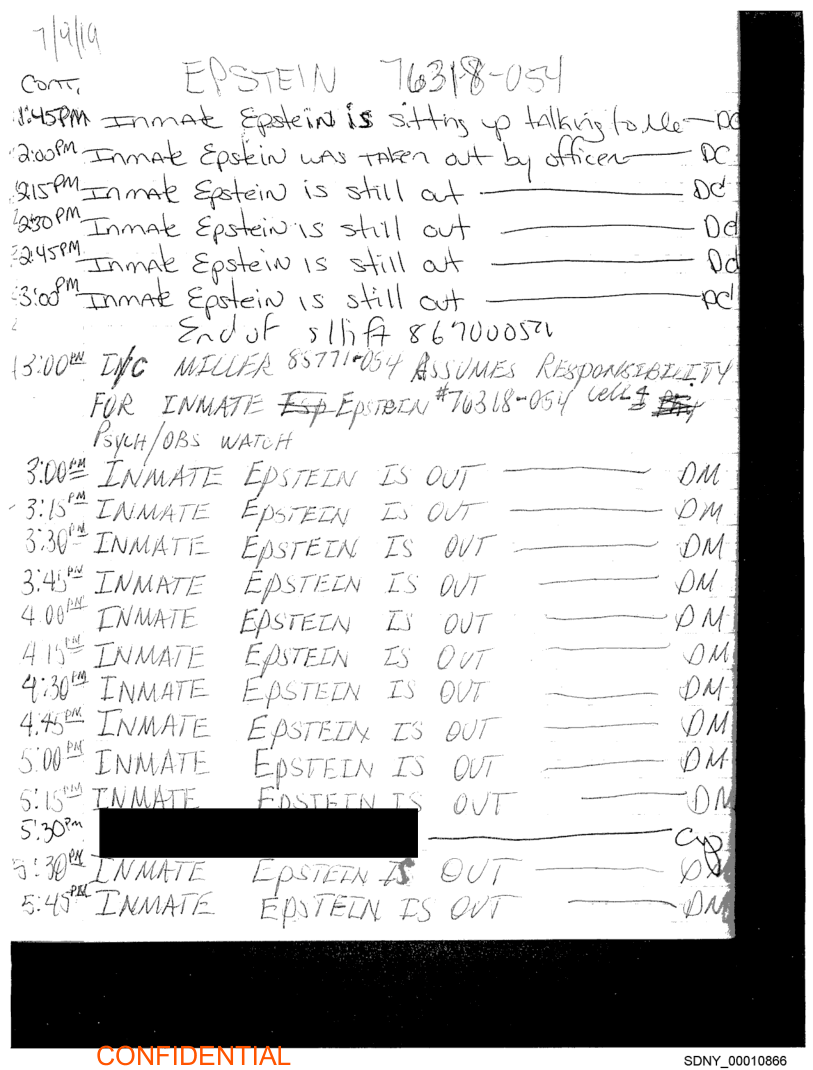 7/9/19
EPSTEIN 76318-054
Cont.
1:45PM Inmate Epstein is sitting up talking to Me — DC
2:00PM Inmate Epstein was taken out by officer — DC
2:15PM Inmate Epstein is still out — DC
2:30PM Inmate Epstein is still out — DC
2:45PM Inmate Epstein is still out — DC
3:00PM Inmate Epstein is still out — DC
End of shift
3:00PM I/C MILLER 85771-054 ASSUMES RESPONSIBILITY
FOR INMATE Esp EPSTEIN #76318-054 cell 4
PSYCH/OBS WATCH
3:00PM INMATE EPSTEIN IS OUT — DM
3:15PM INMATE EPSTEIN IS OUT — DM
3:30PM INMATE EPSTEIN IS OUT — DM
3:45PM INMATE EPSTEIN IS OUT — DM
4:00PM INMATE EPSTEIN IS OUT — DM
4:15PM INMATE EPSTEIN IS OUT — DM
4:30PM INMATE EPSTEIN IS OUT — DM
4:45PM INMATE EPSTEIN IS OUT — DM
5:00PM INMATE EPSTEIN IS OUT — DM
5:15PM INMATE EPSTEIN IS OUT — DM
5:30PM —
5:30PM INMATE EPSTEIN IS OUT —
5:45PM INMATE EPSTEIN IS OUT — DM
CONFIDENTIAL
SDNY_00010866